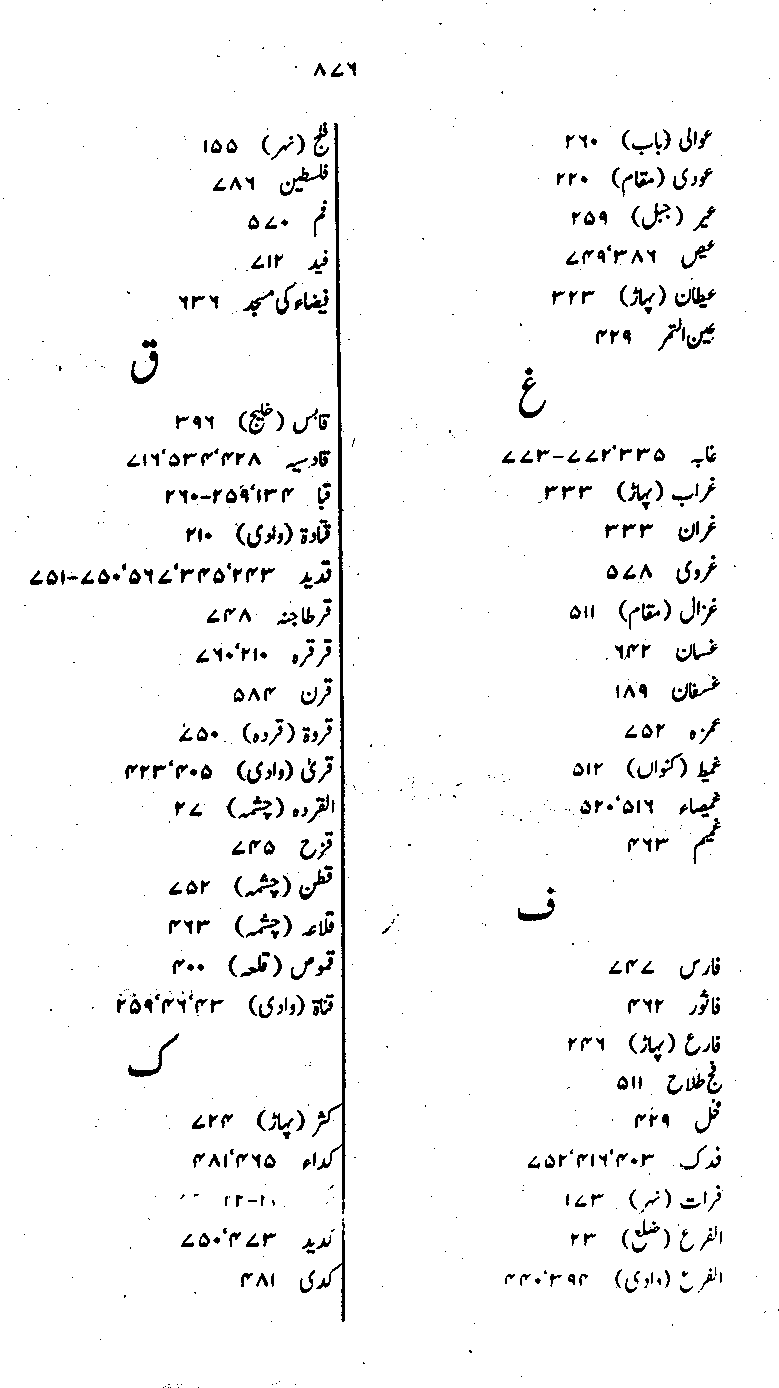 ۸۷۶
عوالی (باب) ۲۶۰
عودی (مقام) ۲۲۰
عیر (جبل) ۲۵۹
عیص ۳۸۶‘۷۴۹
عیطان (پہاڑ) ۳۲۳
عین التمر ۴۲۹
غ
غابہ ۳۳۵‘۷۷۲-۷۷۳
غراب (پہاڑ) ۳۳۳
غران ۳۳۳
غروی ۵۷۸
غزال (مقام) ۵۱۱
غسان ۶۴۲
غسفان ۱۸۹
غمزہ ۷۵۲
غمیط (کنواں) ۵۱۲
غمیصاء ۵۱۶‘۵۲۰
غمیم ۴۶۳
ف
فارس ۷۴۷
فاثور ۴۶۲
فارع (پہاڑ) ۲۴۶
فج طلاح ۵۱۱
فحل ۴۲۹
فدک ۴۰۳‘۴۱۶‘۷۵۲
فرات (نہر) ۱۷۳
الفرع (ضلع) ۲۳
الفرع (وادی) ۳۹۴‘۴۴۰
فلج (نہر) ۱۵۵
فلسطین ۷۸۶
فم ۵۷۰
فید ۷۱۲
فیضاء کی مسجد ۶۳۶
ق
قابس (خلیج) ۳۹۶
قادسیہ ۴۲۸‘۵۳۴‘۷۱۶
قبا ۱۳۴‘۲۵۹-۲۶۰
قتادۃ (وادی) ۲۱۰
قدید ۲۴۳‘۳۴۵‘۵۶۷‘۷۵۰-۷۵۱
قرطاجنہ ۷۴۸
قرقرہ ۲۱۰‘۷۶۰
قرن ۵۸۴
قروۃ (قردہ) ۷۵۰
قریٰ (وادی) ۴۰۵‘۴۲۳
القردہ (چشمہ) ۲۷
قزح ۷۴۵
قطن (چشمہ) ۷۵۲
قلاعہ (چشمہ) ۴۶۳
قموص (قلعہ) ۴۰۰
قناۃ (وادی) ۴۳‘۴۶‘۲۵۹
ک
کثر (پہاڑ) ۷۲۴
کداء ۴۶۵‘۴۸۱
کدید ۴۷۳‘۷۵۰
کدی ۴۸۱